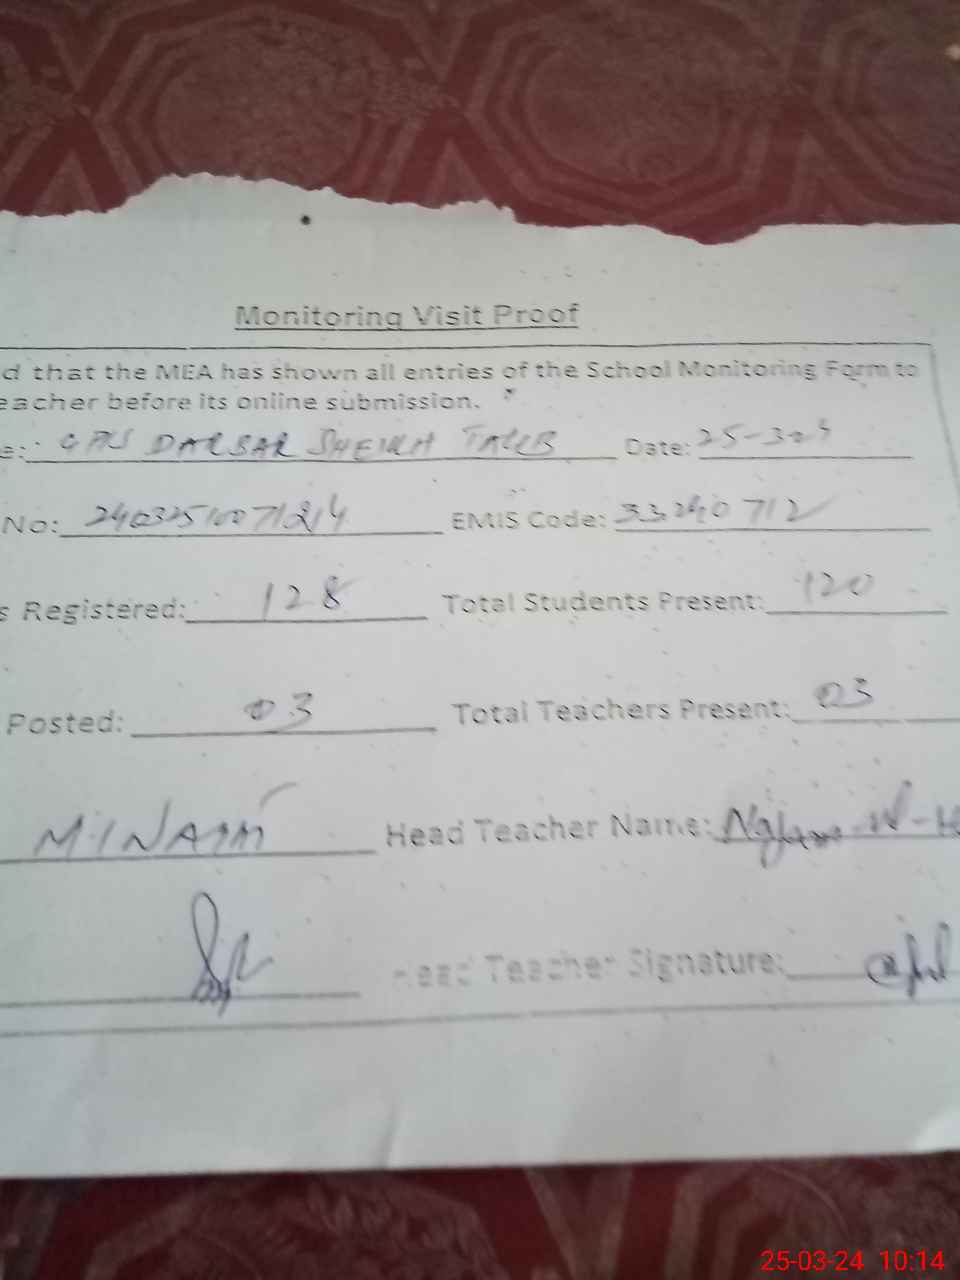 Monitoring Visit Proof
d that the MEA has shown all entries of the School Monitoring Form to
eacher before its online submission.
e: GPS DARBAR SHEIKH TALIB Date: 25-3-
No: EMIS Code: 33240712
s Registered: 128 Total Students Present: 120
Posted: 03 Total Teachers Present: 03
Head Teacher Name:
Head Teacher Signature:
25-03-24 10:14